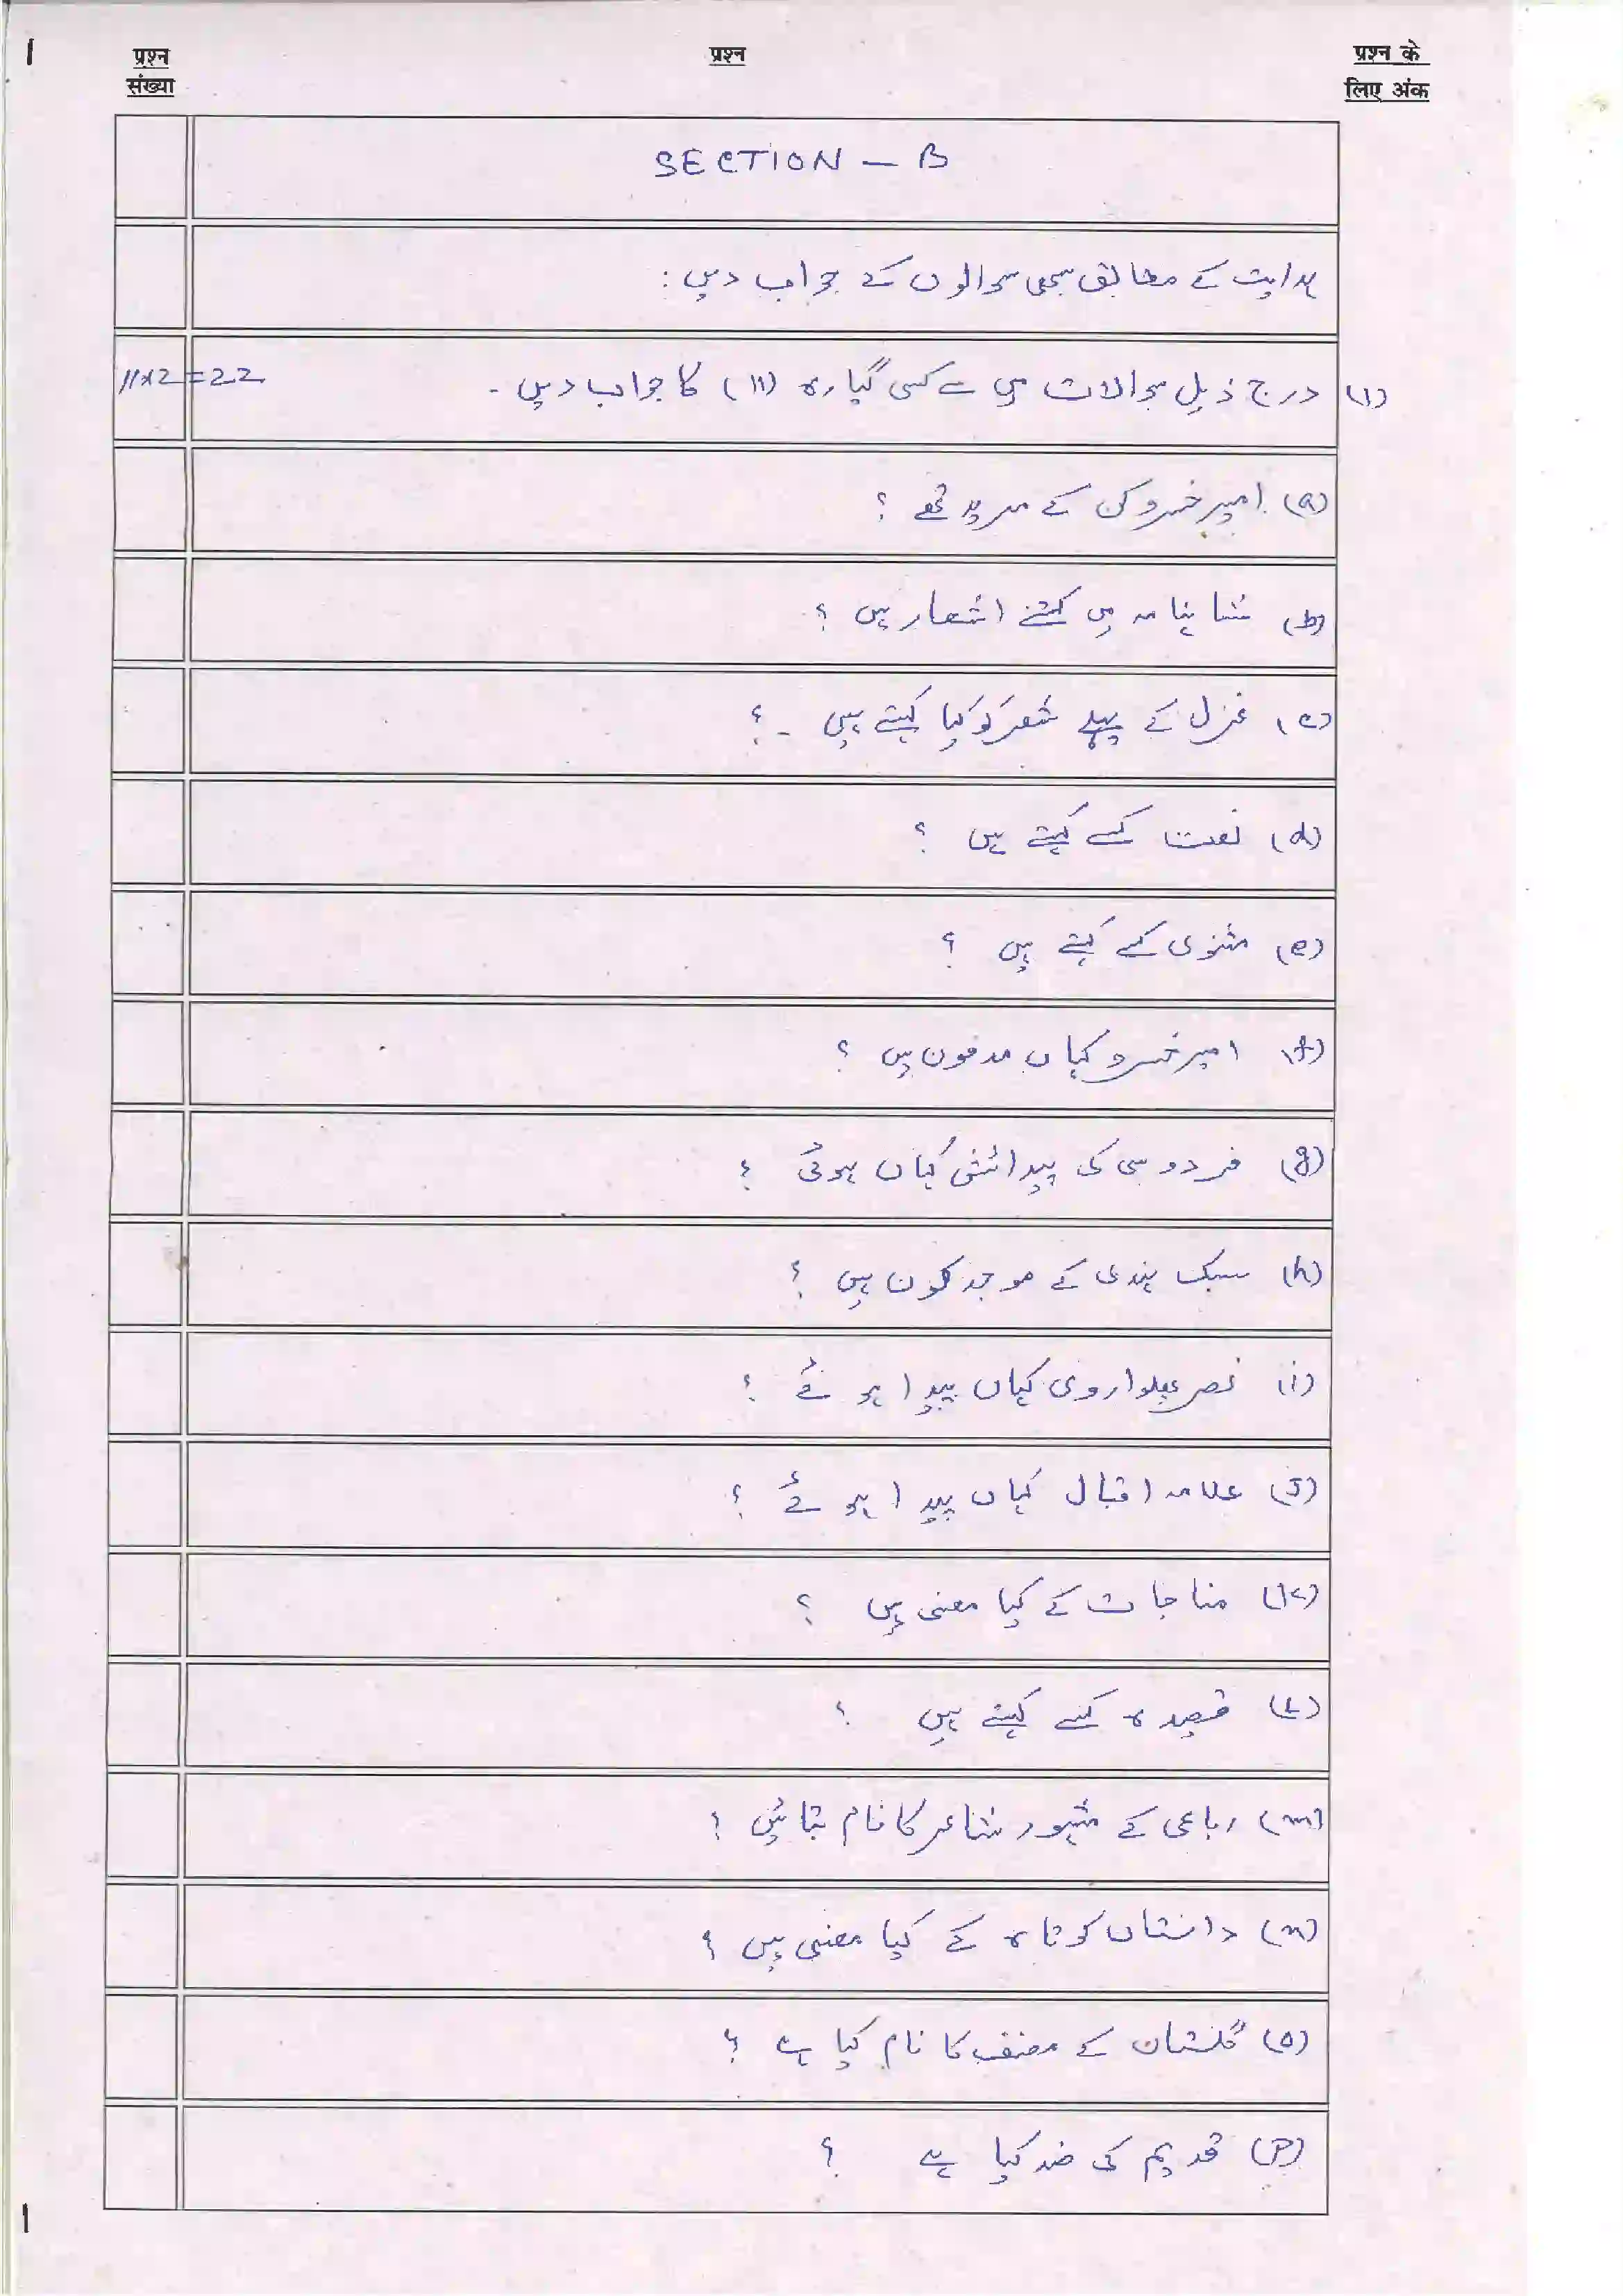 1
प्रश्न संख्या
प्रश्न
प्रश्न के लिए अंक
SECTION - B
ہدایت کے مطابق سبھی سوالوں کے جواب دیں :
(1) درج ذیل سوالات میں سے کسی گیارہ (11) کا جواب دیں - 11x2=22
(a) امیر خسرو کن کے مرید تھے ؟
(b) شاہنامہ میں کتنے اشعار ہیں ؟
(c) غزل کے پہلے شعر کو کیا کہتے ہیں - ؟
(d) نعت کسے کہتے ہیں ؟
(e) مثنوی کسے کہتے ہیں ؟
(f) امیر خسرو کہاں مدفون ہیں ؟
(g) فردوسی کی پیدائش کہاں ہوئی ؟
(h) سبک ہندی کے موجد کون ہیں ؟
(i) نصر پھلواروی کہاں پیدا ہوئے ؟
(j) علامہ اقبال کہاں پیدا ہوئے ؟
(k) مناجات کے کیا معنی ہیں ؟
(l) قصیدہ کسے کہتے ہیں ؟
(m) رباعی کے مشہور شاعر کا نام بتائیں ؟
(n) داستاں کوتاہ کے کیا معنی ہیں ؟
(o) گلستان کے مصنف کا نام کیا ہے ؟
(p) قدیم کی ضد کیا ہے ؟
1